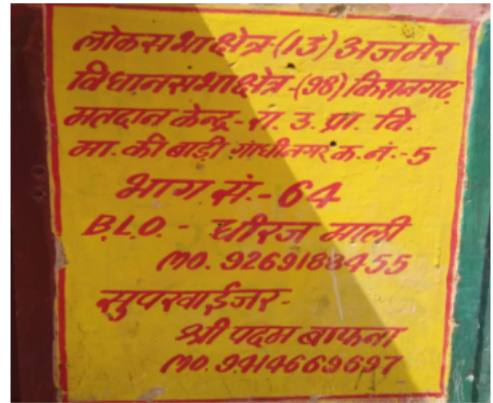 लोकसभा क्षेत्र-(13) अजमेर
विधानसभा क्षेत्र-(98) किशनगढ़
मतदान केन्द्र- रा. उ. प्रा. वि.
मा. की बाड़ी गांधीनगर क. नं.-5
भाग सं.- 64
B.L.O. - धीरज माली
MO. 9269188455
सुपरवाईजर-
श्री पदम बाफना
MO. 9414669697